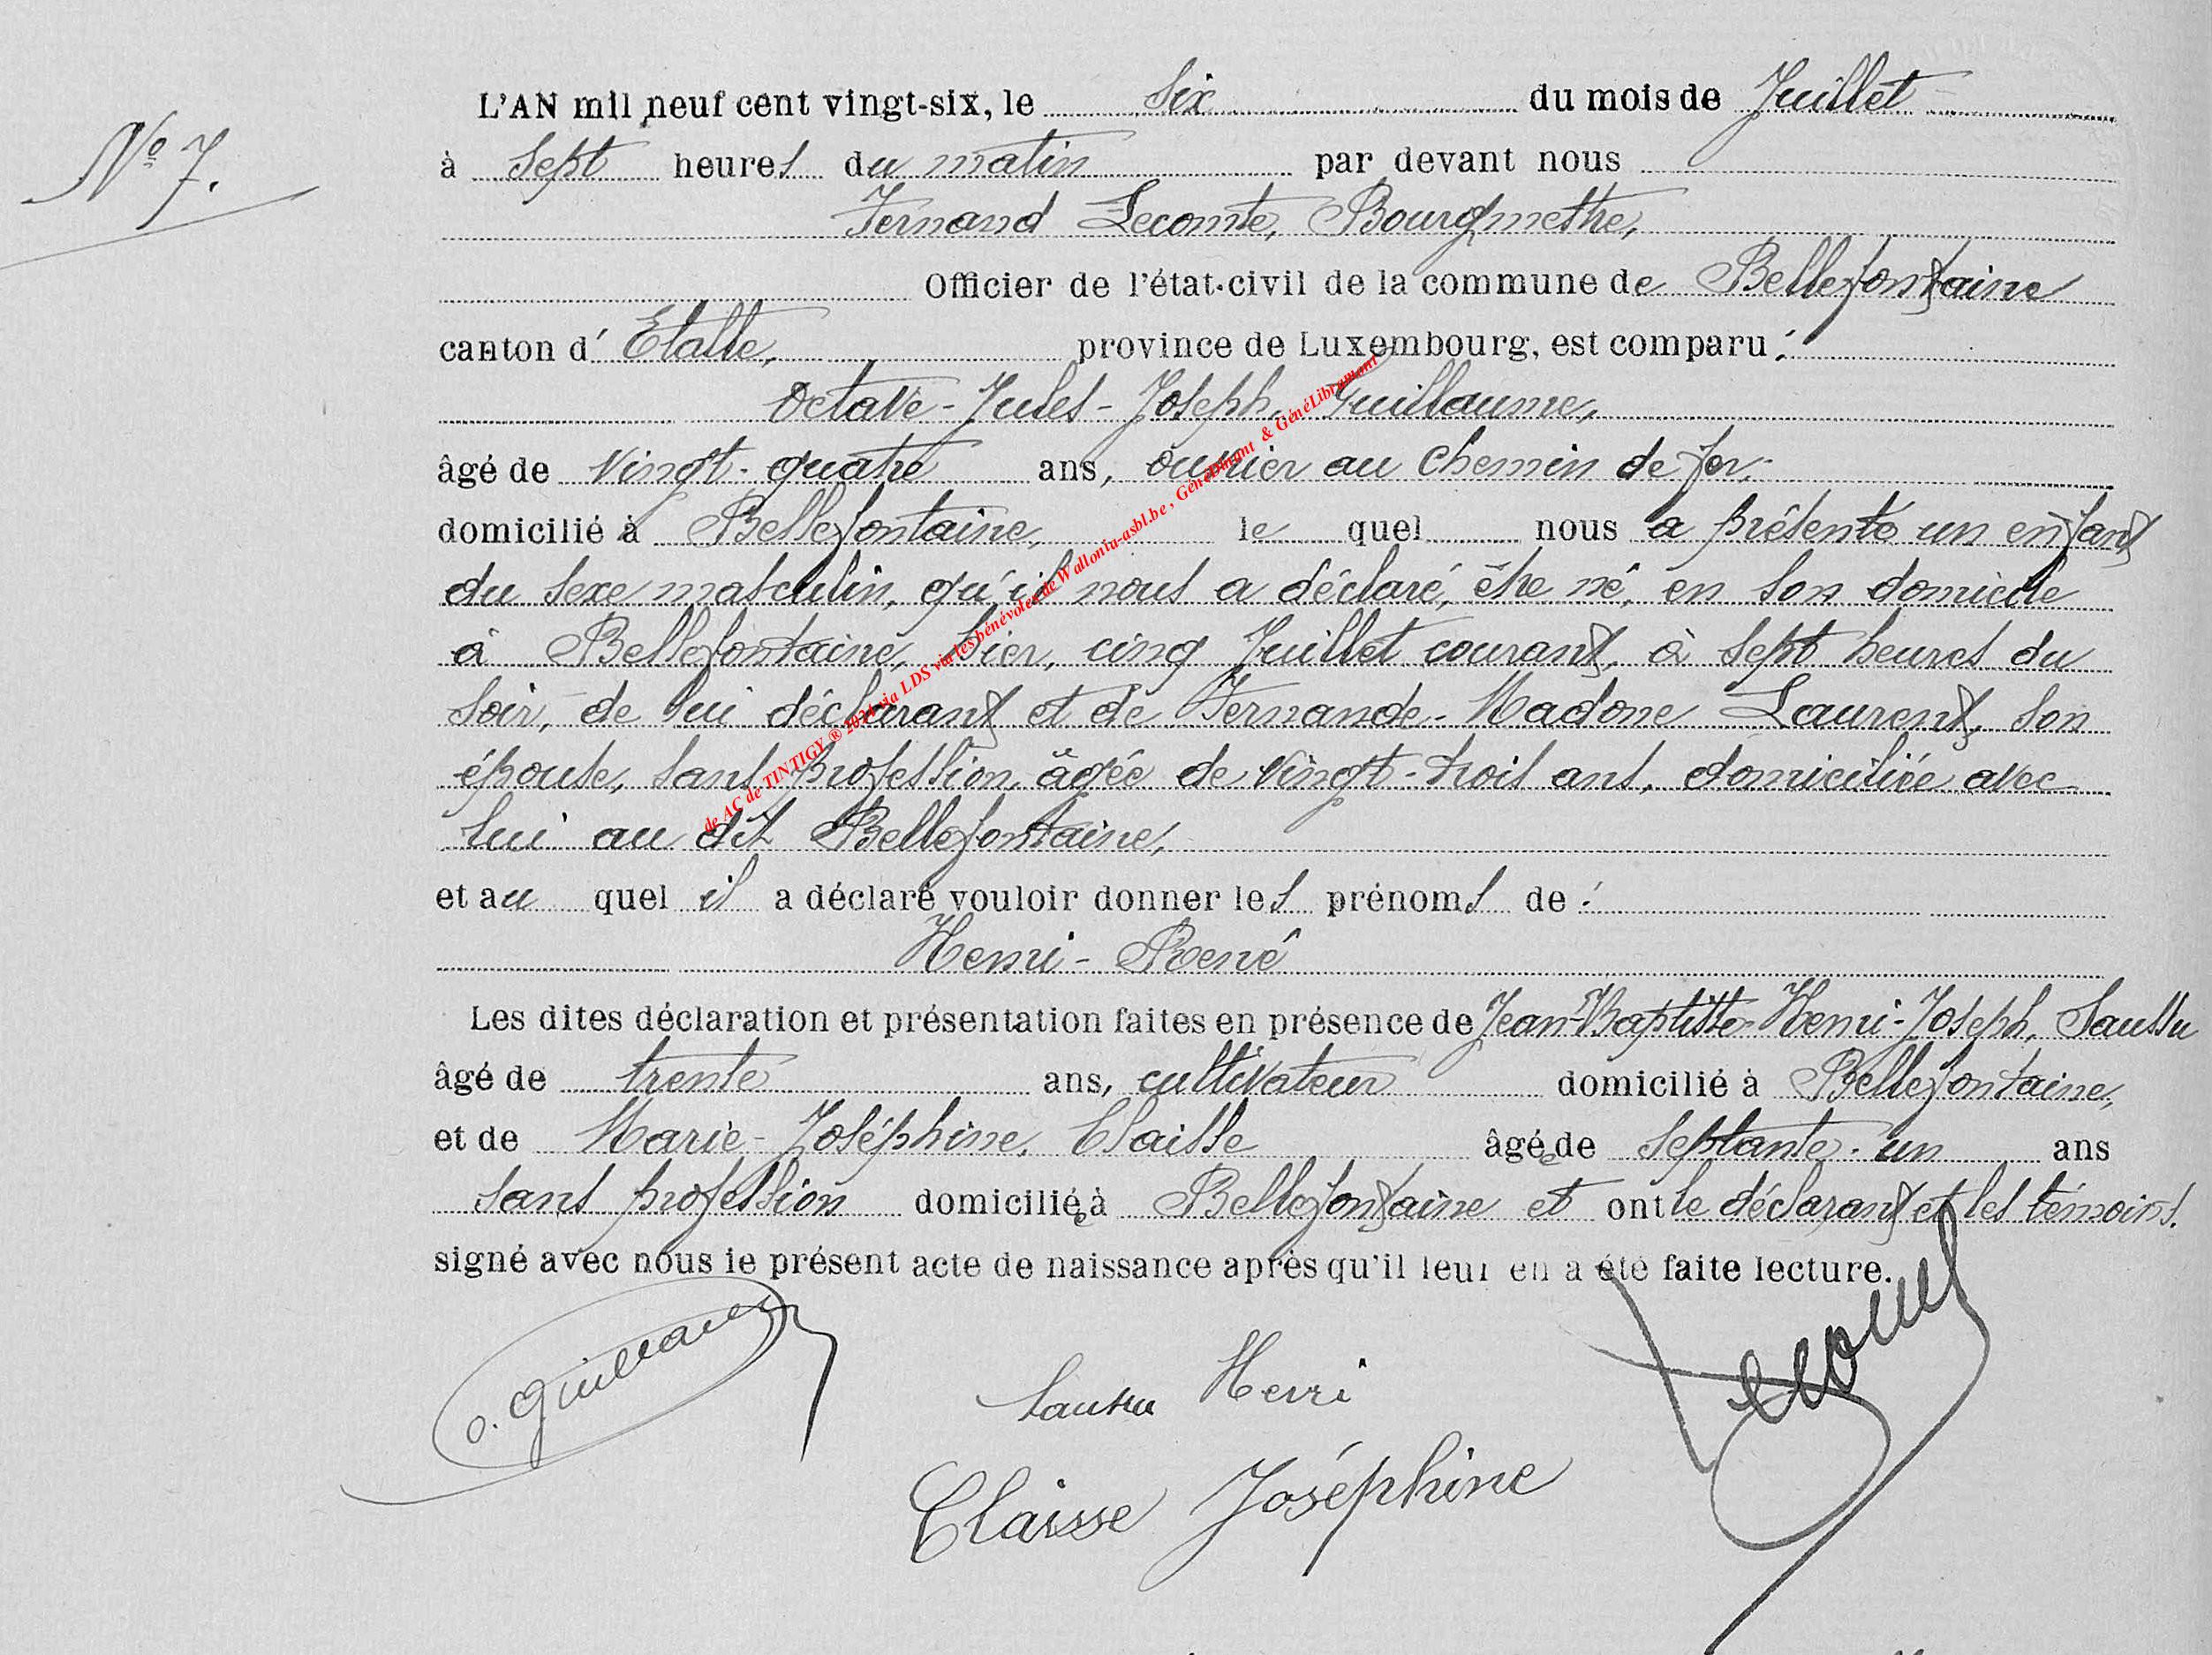 N° 7.
L'AN mil neuf cent vingt-six, le six du mois de Juillet
à sept heures du matin par devant nous
Fernand Lecomte, Bourgmestre,
Officier de l'état-civil de la commune de Bellefontaine
canton d'Etalle, province de Luxembourg, est comparu :
Octave-Jules-Joseph, Guillaume,
âgé de vingt-quatre ans, ouvrier au chemin de fer,
domicilié à Bellefontaine, le quel nous a présenté un enfant
du sexe masculin, qu'il nous a déclaré, être né, en son domicile
à Bellefontaine, hier, cinq Juillet courant, à sept heures du
soir, de lui déclarant et de Fernande-Madone Laurent, son
épouse, sans profession, âgée de vingt-trois ans, domiciliée avec
lui au dit Bellefontaine,
et au quel il a déclaré vouloir donner les prénoms de :
Henri-René
Les dites déclaration et présentation faites en présence de Jean-Baptiste-Henri-Joseph, Saussu
âgé de trente ans, cultivateur domicilié à Bellefontaine,
et de Marie-Joséphine, Claisse âgée de septante-un ans
sans profession domiciliée à Bellefontaine et ont le déclarant et les témoins,
signé avec nous le présent acte de naissance après qu'il leur en a été faite lecture.
O. Guillaume
Saussu Henri
Claisse Joséphine
de AC de TINTIGY ® 2024 via LDS via les bénévoles de Wallonia-asbl.be, GénéDinant & GénéLibramont